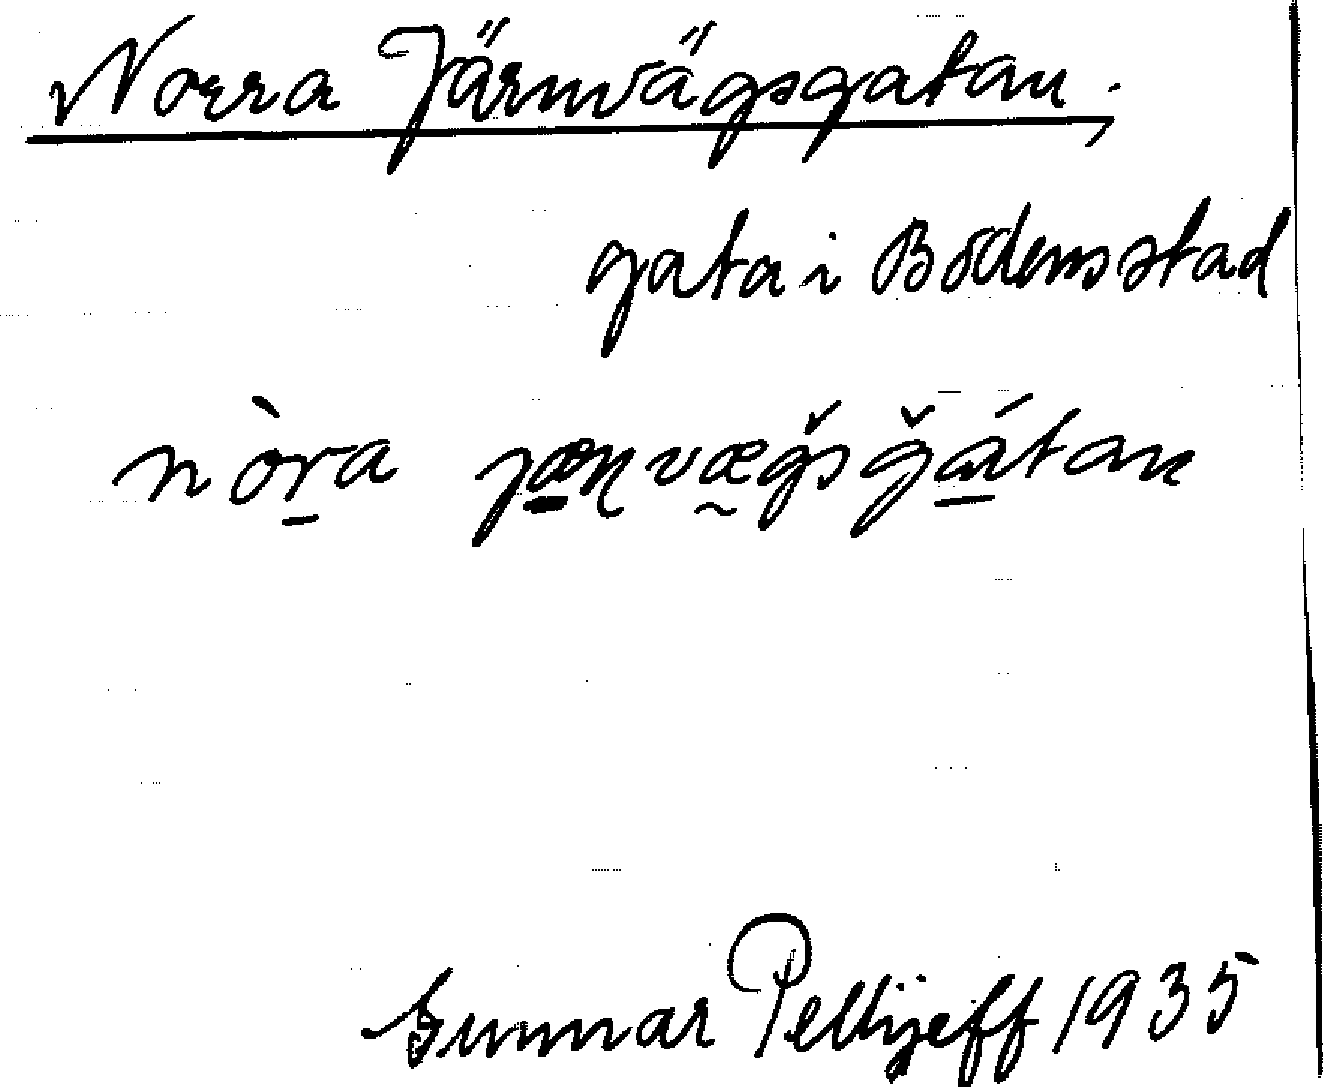 Norra Järnvägsgatan,
gata i Bodens stad
nòr̠a jæ̠ɳvæ̰ǧsǧá̠tan
Gunnar Pellijeff 1935